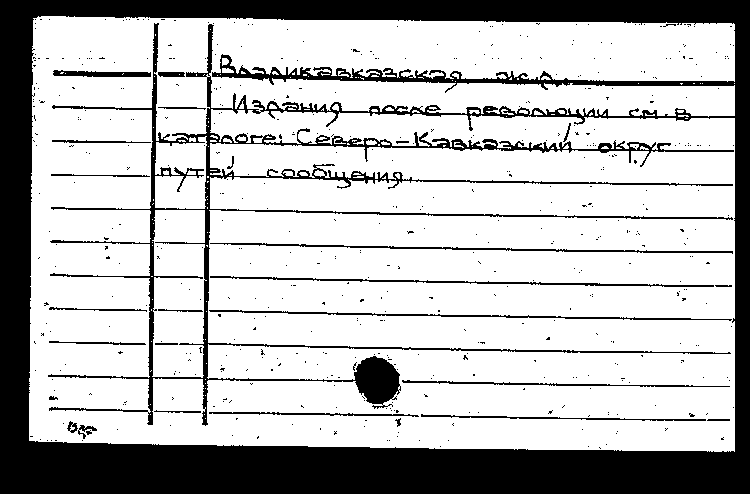 Владикавказская ж.д.
Издания после революции см. в
каталоге: Северо-Кавказский округ
путей сообщения.